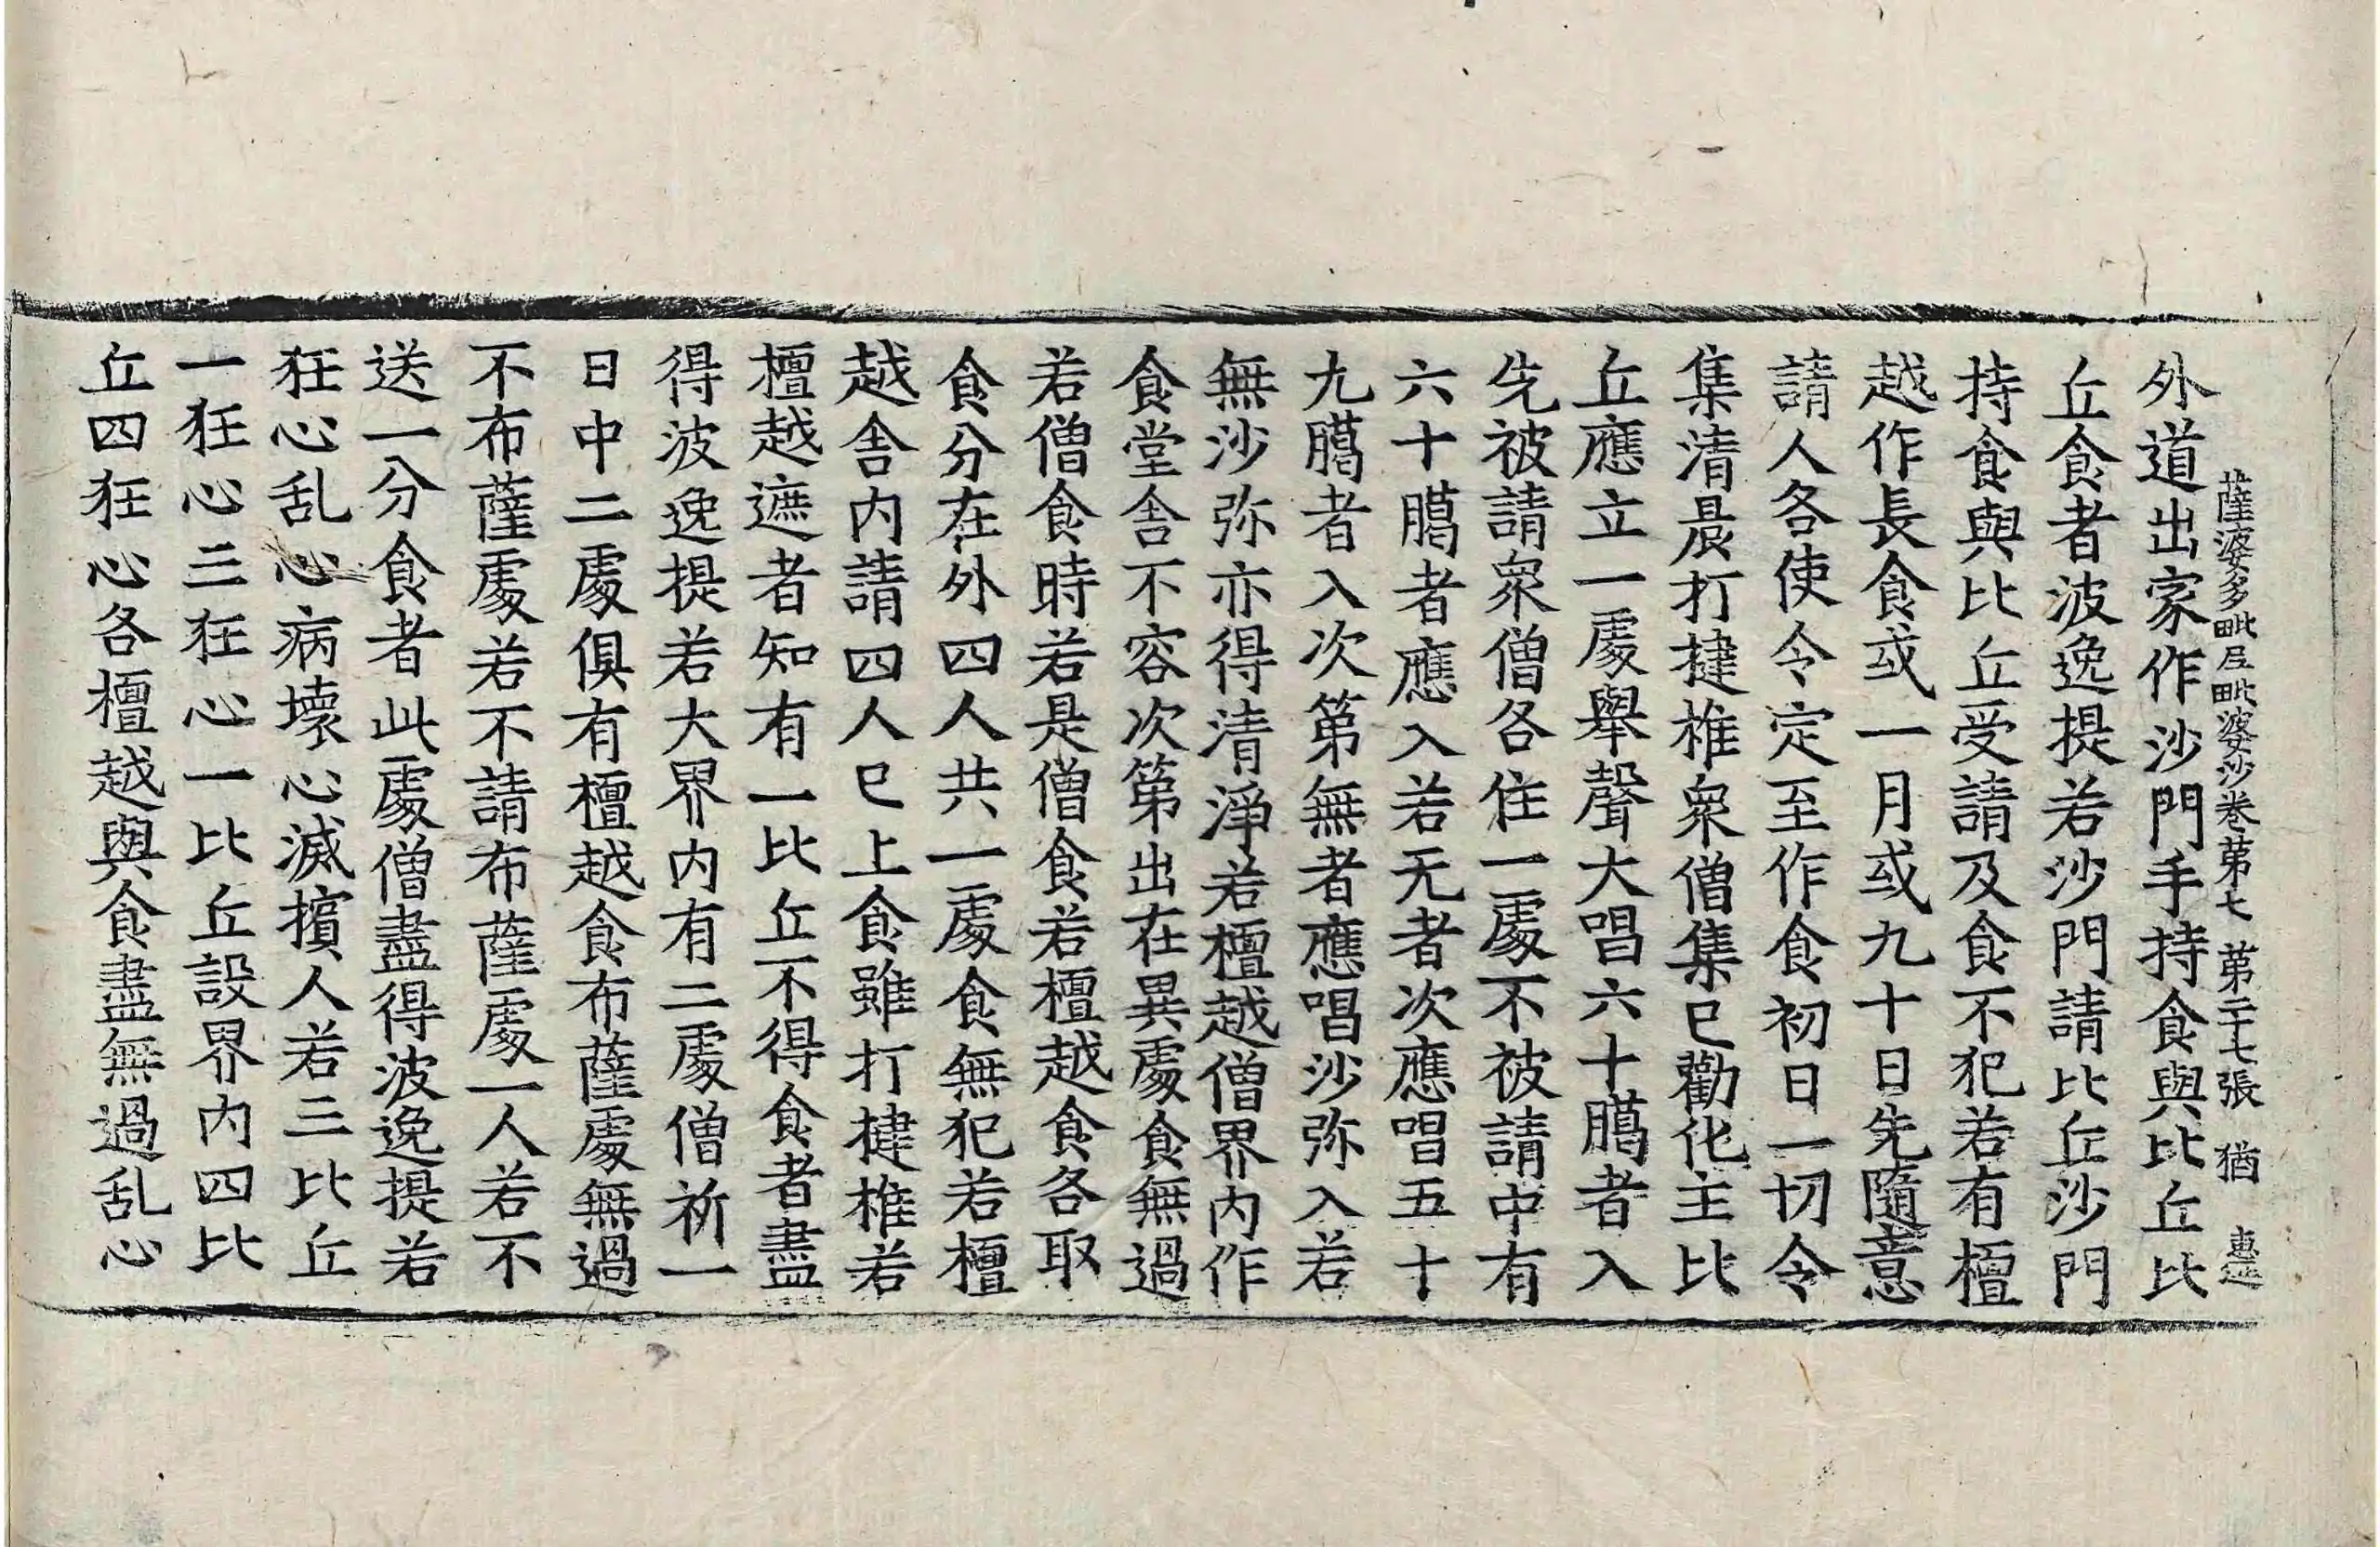 薩婆多毗尼毗婆沙卷苐七 苐二十七張 猶 惠造
外道出家作沙門手持食與比丘比
丘食者波逸提若沙門請比丘沙門
持食與比丘受請及食不犯若有檀
越作長食或一月或九十日先隨意
請人各使令定至作食初日一切令
集清晨打揵椎衆僧集已勸化主比
丘應立一處舉聲大唱六十臈者入
先被請衆僧各住一處不被請中有
六十臈者應入若无者次應唱五十
九臈者入次第無者應唱沙弥入若
無沙弥亦得清淨若檀越僧界內作
食堂舍不容次第出在異處食無過
若僧食時若是僧食若檀越食各取
食分在外四人共一處食無犯若檀
越舍內請四人已上食雖打揵椎若
檀越遮者知有一比丘不得食者盡
得波逸提若大界內有二處僧祈一
日中二處俱有檀越食布薩處無過
不布薩處若不請布薩處一人若不
送一分食者此處僧盡得波逸提若
狂心乱心病壞心滅擯人若三比丘
一狂心三狂心一比丘設界內四比
丘四狂心各檀越與食盡無過乱心